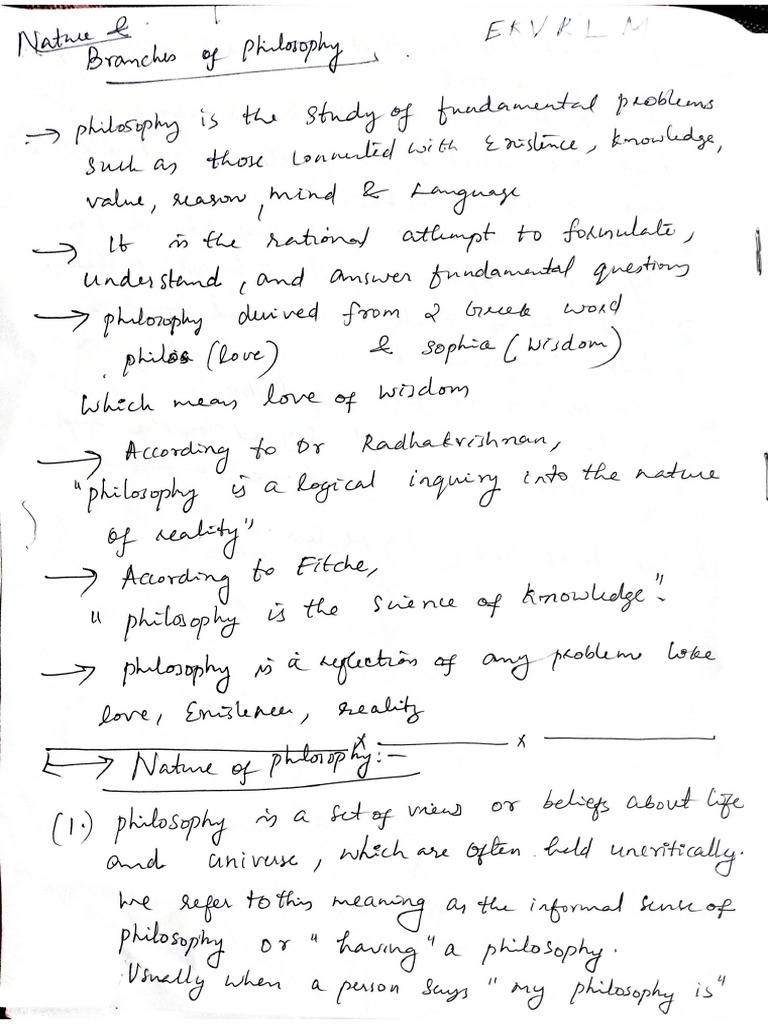 Nature &
Branches of Philosophy
E K V R L M
→ philosophy is the study of fundamental problems
such as those connected with Existence, knowledge,
value, reason, mind & Language
→ It is the rational attempt to formulate,
understand, and answer fundamental questions
→ philosophy derived from 2 Greek word
philos (love) & sophia (wisdom)
which means love of wisdom
→ According to Dr Radhakrishnan,
"philosophy is a logical inquiry into the nature
of reality"
→ According to Fitche,
" philosophy is the science of knowledge".
→ philosophy is a reflection of any problems like
love, Existence, reality
x x
→ Nature of philosophy:-
(1.) philosophy is a set of views or beliefs about life
and universe, which are often held uncritically.
We refer to this meaning as the informal sense of
philosophy or "having" a philosophy.
Usually when a person says "my philosophy is"